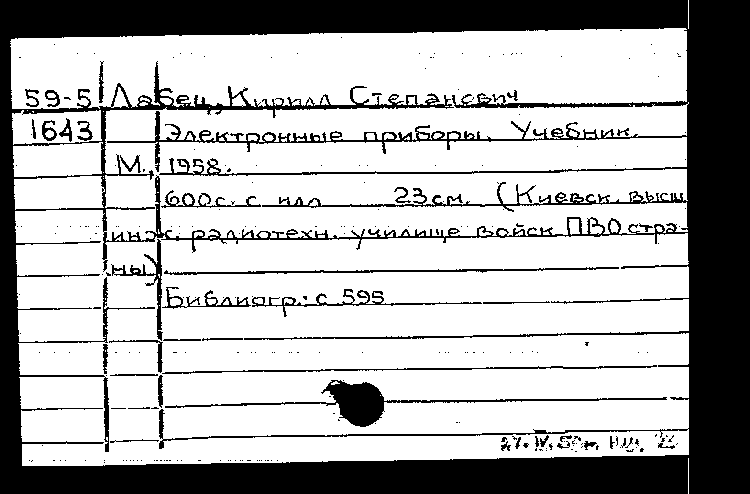 59-5 Лабец, Кирилл Степанович
1643 Электронные приборы. Учебник.
М., 1958.
600 с. с илл 23 см. (Киевск. высш
инж. радиотехн. училище войск ПВО стра-
ны).
Библиогр.: с 595